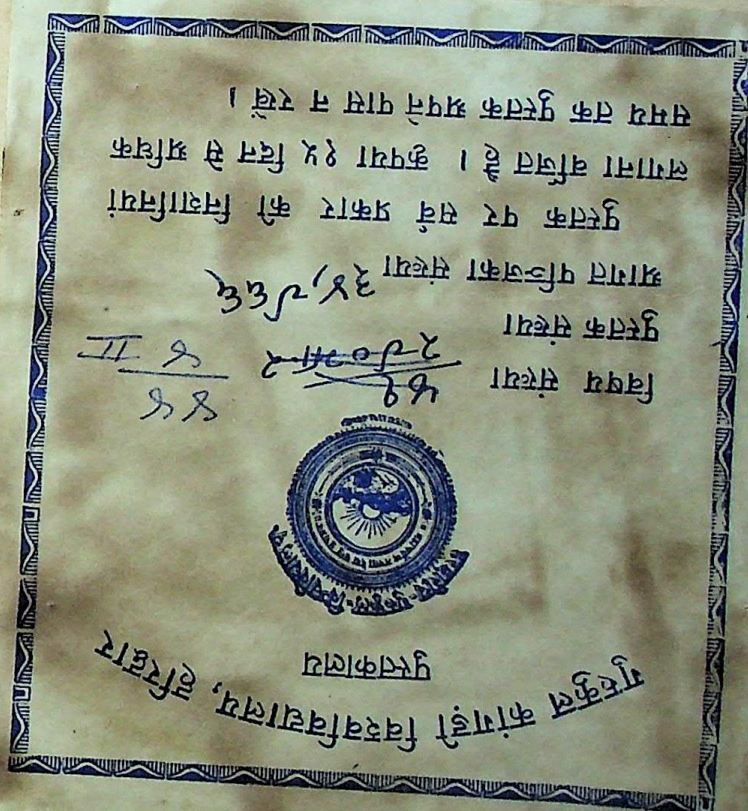 गुरुकुल कांगड़ी विश्वविद्यालय, हरिद्वार
पुस्तकालय
विषय संख्या
पुस्तक संख्या
आगत पञ्जिका संख्या
पुस्तक पर सर्व प्रकार की निशानियां
लगाना वर्जित है । कृपया १५ दिन से अधिक
समय तक पुस्तक अपने पास न रखें ।